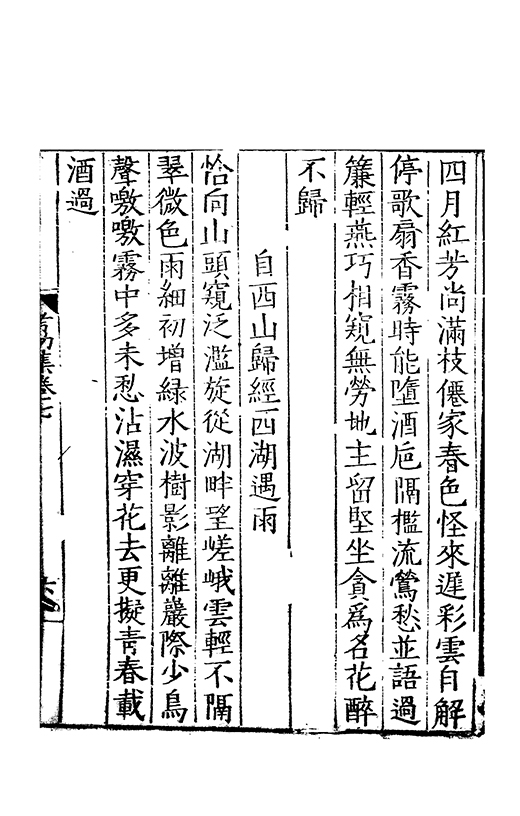 四月紅芳尚滿枝僊家春色怪來遲彩雲自解
停歌扇香霧時能墮酒巵隔檻流鶯愁並語過
簾輕燕巧相窺無勞地主留堅坐貪爲名花醉
不歸
自西山歸經西湖遇雨
恰向山頭窺泛濫旋從湖畔望嵯峨雲輕不隔
翠微色雨細初增綠水波樹影離離巖際少鳥
聲噭噭霧中多未愁沾濕穿花去更擬青春載
酒過
集卷七